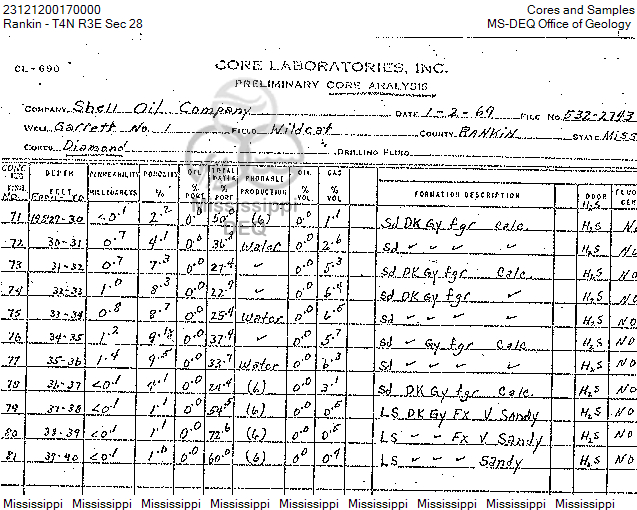 23121200170000 Cores and Samples
Rankin - T4N R3E Sec 28 MS-DEQ Office of Geology
CL-690 CORE LABORATORIES, INC.
PRELIMINARY CORE ANALYSIS
COMPANY Shell Oil Company DATE 1-2-69 FILE NO. 532-2743
WELL Garrett No. 1 FIELD Wildcat COUNTY RANKIN STATE Miss
CORED Diamond DRILLING FLUID
DEPTH FEET PERMEABILITY MILLIDARCYS POROSITY % OIL % PORE TOTAL WATER % PORE PROBABLE PRODUCTION OIL % VOL. GAS % VOL. FORMATION DESCRIPTION ODOR H2S
71 19529-30 <0.1 2.2 0.0 50.0 (6) 0.0 1.1 Sd DK Gy fgr Calc. H2S No
72 30-31 0.7 4.1 0.0 Water 0.0 2.6 Sd ✓ ✓ ✓ ✓ H2S No
73 31-32 0.7 7.3 0.0 27.4 ✓ 0.0 5.3 Sd DK Gy fgr Calc. H2S No
74 32-33 1.0 8.3 0.0 22.9 ✓ 0.0 6.4 Sd DK Gy fgr ✓ H2S No
75 33-34 0.8 8.7 0.0 25.4 Water 0.0 Sd ✓ ✓ ✓ ✓ H2S NO
76 34-35 1.2 0.0 37.4 ✓ 0.0 5.7 Sd ✓ Gy fgr Calc H2S NO
77 35-36 1.4 9.5 0.0 33.7 Water 0.0 6.3 Sd ✓ ✓ ✓ ✓ H2S NO
78 36-37 <0.1 0.0 24.4 (6) 0.0 3.1 Sd DK Gy fgr Calc. H2S NO
79 37-38 <0.1 1.1 0.0 54.5 (6) 0.0 0.5 LS DK Gy Fx V. Sandy H2S NO
80 38-39 <0.1 1.1 0.0 72.6 (6) 0.0 0.5 LS ✓ ✓ Fx V. Sandy H2S NO
81 39-40 <0.1 1.0 0.0 60.0 (6) 0.0 0.4 LS ✓ ✓ ✓ Sandy H2S NO
Mississippi
DEQ
Mississippi Mississippi Mississippi Mississippi Mississippi Mississippi Mississippi Mississippi Mississippi